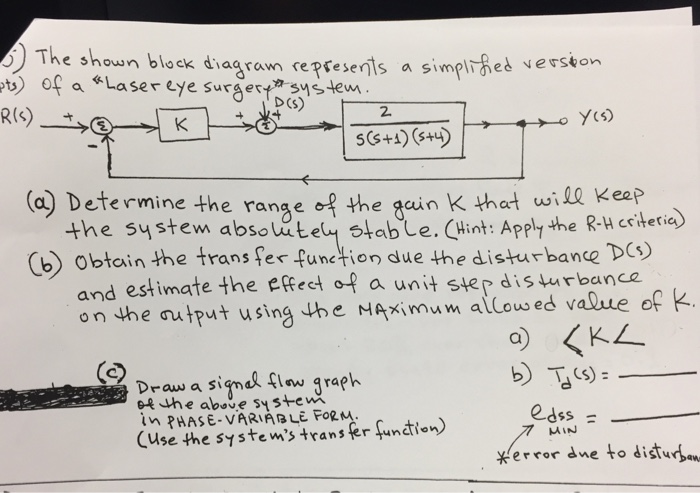 5) The shown block diagram represents a simplified version
pts) of a "Laser eye surgery" system.
D(s)
R(s) + Σ K + + Σ 2 Y(s)
- s(s+1)(s+4)
(a) Determine the range of the gain K that will keep
the system absolutely stable. (Hint: Apply the R-H criteria)
(b) Obtain the transfer function due the disturbance D(s)
and estimate the effect of a unit step disturbance
on the output using the MAximum allowed value of K.
a) <K<
(c) b) Td(s) =
Draw a signal flow graph
of the above system
in PHASE-VARIABLE FORM.
(Use the system's transfer function)
edss =
MIN
*error due to disturban